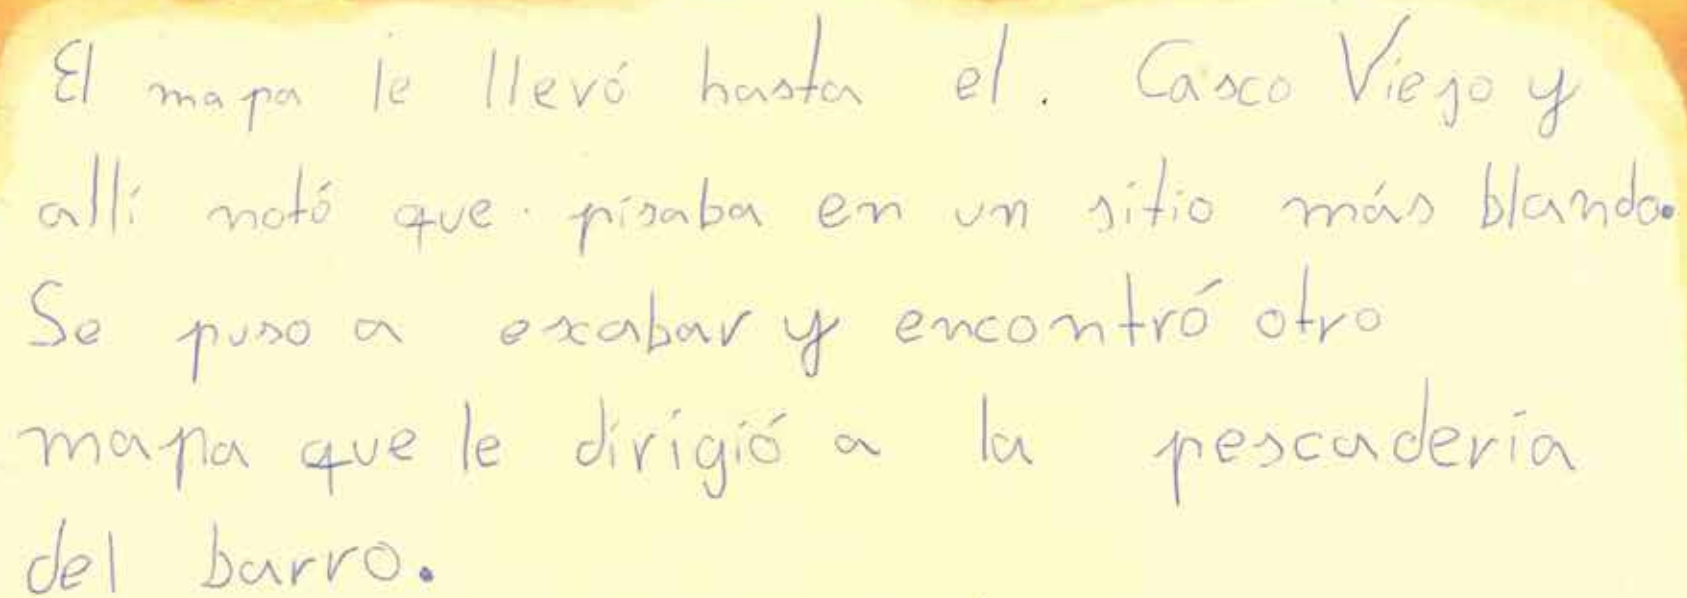 El mapa le llevó hasta el. Casco Viejo y
allí notó que pisaba en un sitio más blando.
Se puso a excabar y encontró otro
mapa que le dirigió a la pescadería
del barro.